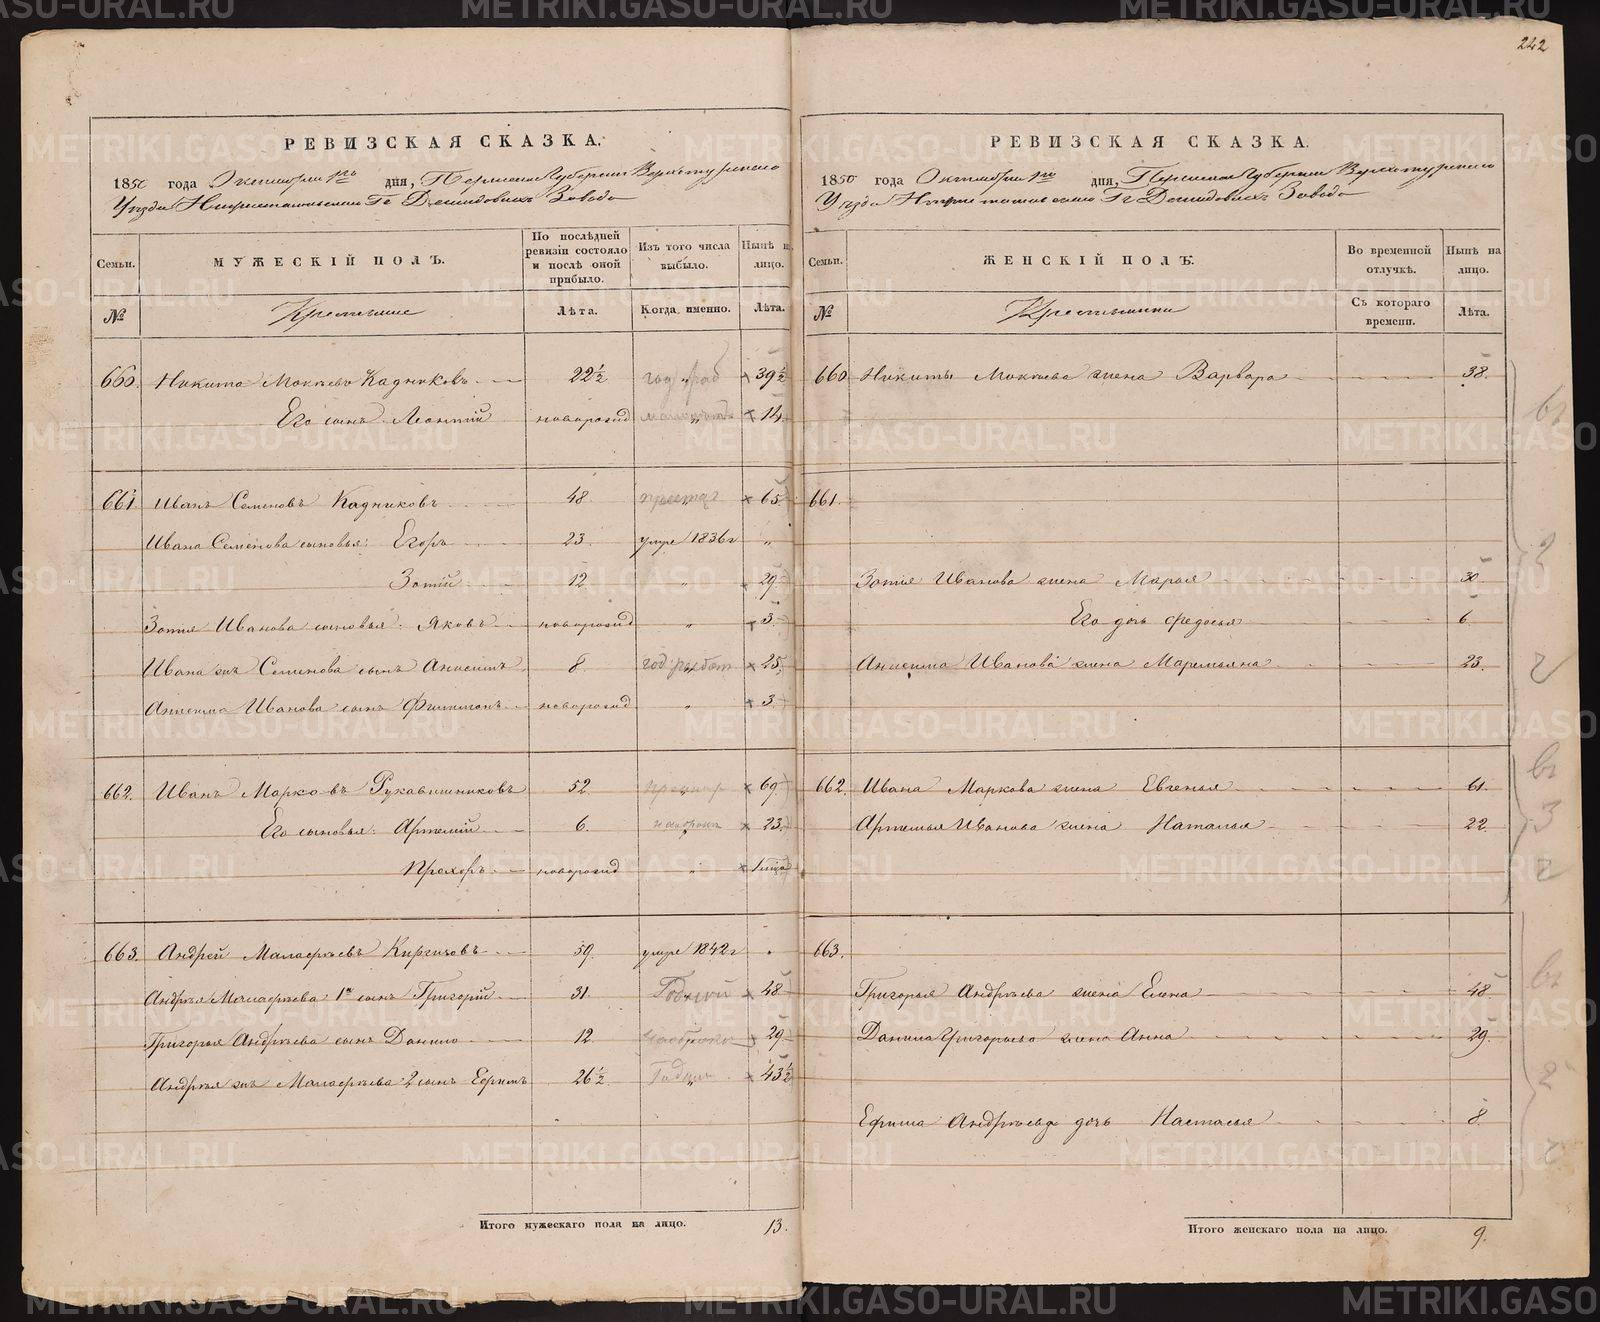 242
РЕВИЗСКАЯ СКАЗКА.
1850 года Октября 1го дня, Пермской Губернии Верхотурского
Уезда Нижнетагильского Гг Демидовыхъ Завода
Семьи. МУЖЕСКІЙ ПОЛЪ. По послѣдней ревизіи состояло и послѣ оной прибыло. Изъ того числа выбыло. Нынѣ на лицо.
№ Крестьяне Лѣта. Когда именно. Лѣта.
660. Никита Мокѣевъ Кадниковъ 22½ " 39½
Его сынъ Леонтій новорожд " 14.
661 Иванъ Семеновъ Кадниковъ 48. престар 65
Ивана Семенова сыновья: Егоръ 23. умре 1836г "
Зотій 12. " 29
Зотія Иванова сыновья: Яковъ новорожд " 3.
Ивана жъ Семенова сынъ Анисимъ 8. " 25
Анисима Иванова сынъ Филимонъ новорожд " 3
662. Иванъ Марковъ Рукавишниковъ 52. " 69
Его сыновья: Артемій 6. " 23.
Прохоръ новорожд " 1
663. Андрей Малафѣевъ Киргизовъ 59. умре 1842г "
Андрѣя Малафѣева 1й сынъ Григорій 31. 48
Григорья Андрѣева сынъ Данило 12. 29
Андрѣя жъ Малафѣева 2 сынъ Ефимъ 26½ " 43½
Итого мужескаго пола на лицо. 13.
РЕВИЗСКАЯ СКАЗКА.
1850 года Октября 1го дня, Пермской Губернии Верхотурского
Уезда Нижнетагильского Гг Демидовыхъ Завода
Семьи. ЖЕНСКІЙ ПОЛЪ. Во временной отлучкѣ. Нынѣ на лицо.
№ Крестьянки Съ котораго времени. Лѣта.
660 Никиты Мокѣева жена Варвара 38.
661.
Зотія Иванова жена Марья 30
Его дочь Федосья 6
Анисима Иванова жена Маремьяна 23.
662. Ивана Маркова жена Евгенья 61.
Артемья Иванова жена Наталья 22.
663.
Григорья Андрѣева жена Елена 48
Данила Григорьева жена Анна 29.
Ефима Андрѣева дочь Настасья 8.
Итого женскаго пола на лицо. 9.
METRIKI.GASO-URAL.RU